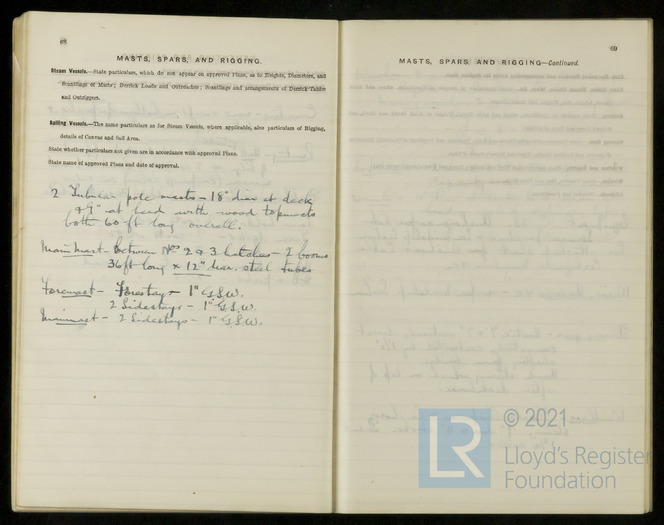 68
MASTS, SPARS, AND RIGGING.
Steam Vessels.—State particulars, which do not appear on approved Plans, as to Heights, Diameters, and
Scantlings of Masts; Derrick Loads and Outreaches; Scantlings and arrangements of Derrick Tables
and Outriggers.
Sailing Vessels.—The same particulars as for Steam Vessels, where applicable, also particulars of Rigging,
details of Canvas and Sail Area.
State whether particulars not given are in accordance with approved Plans.
State name of approved Plans and date of approval.
2 Tubular pole masts – 18" diar at deck
& 9" at head with wood topmasts
both 60 ft long overall.
Main Mast – between Nos 2 & 3 hatches – 2 booms
36 ft long x 12" diar. steel tubes
Foremast – Forestay – 1" G.S.W.
2 Sidestays – 1" G.S.W.
Mainmast – 2 Sidestays – 1" G.S.W.
69
MASTS, SPARS, AND RIGGING—Continued.
© 2021
LR
Lloyd's Register
Foundation